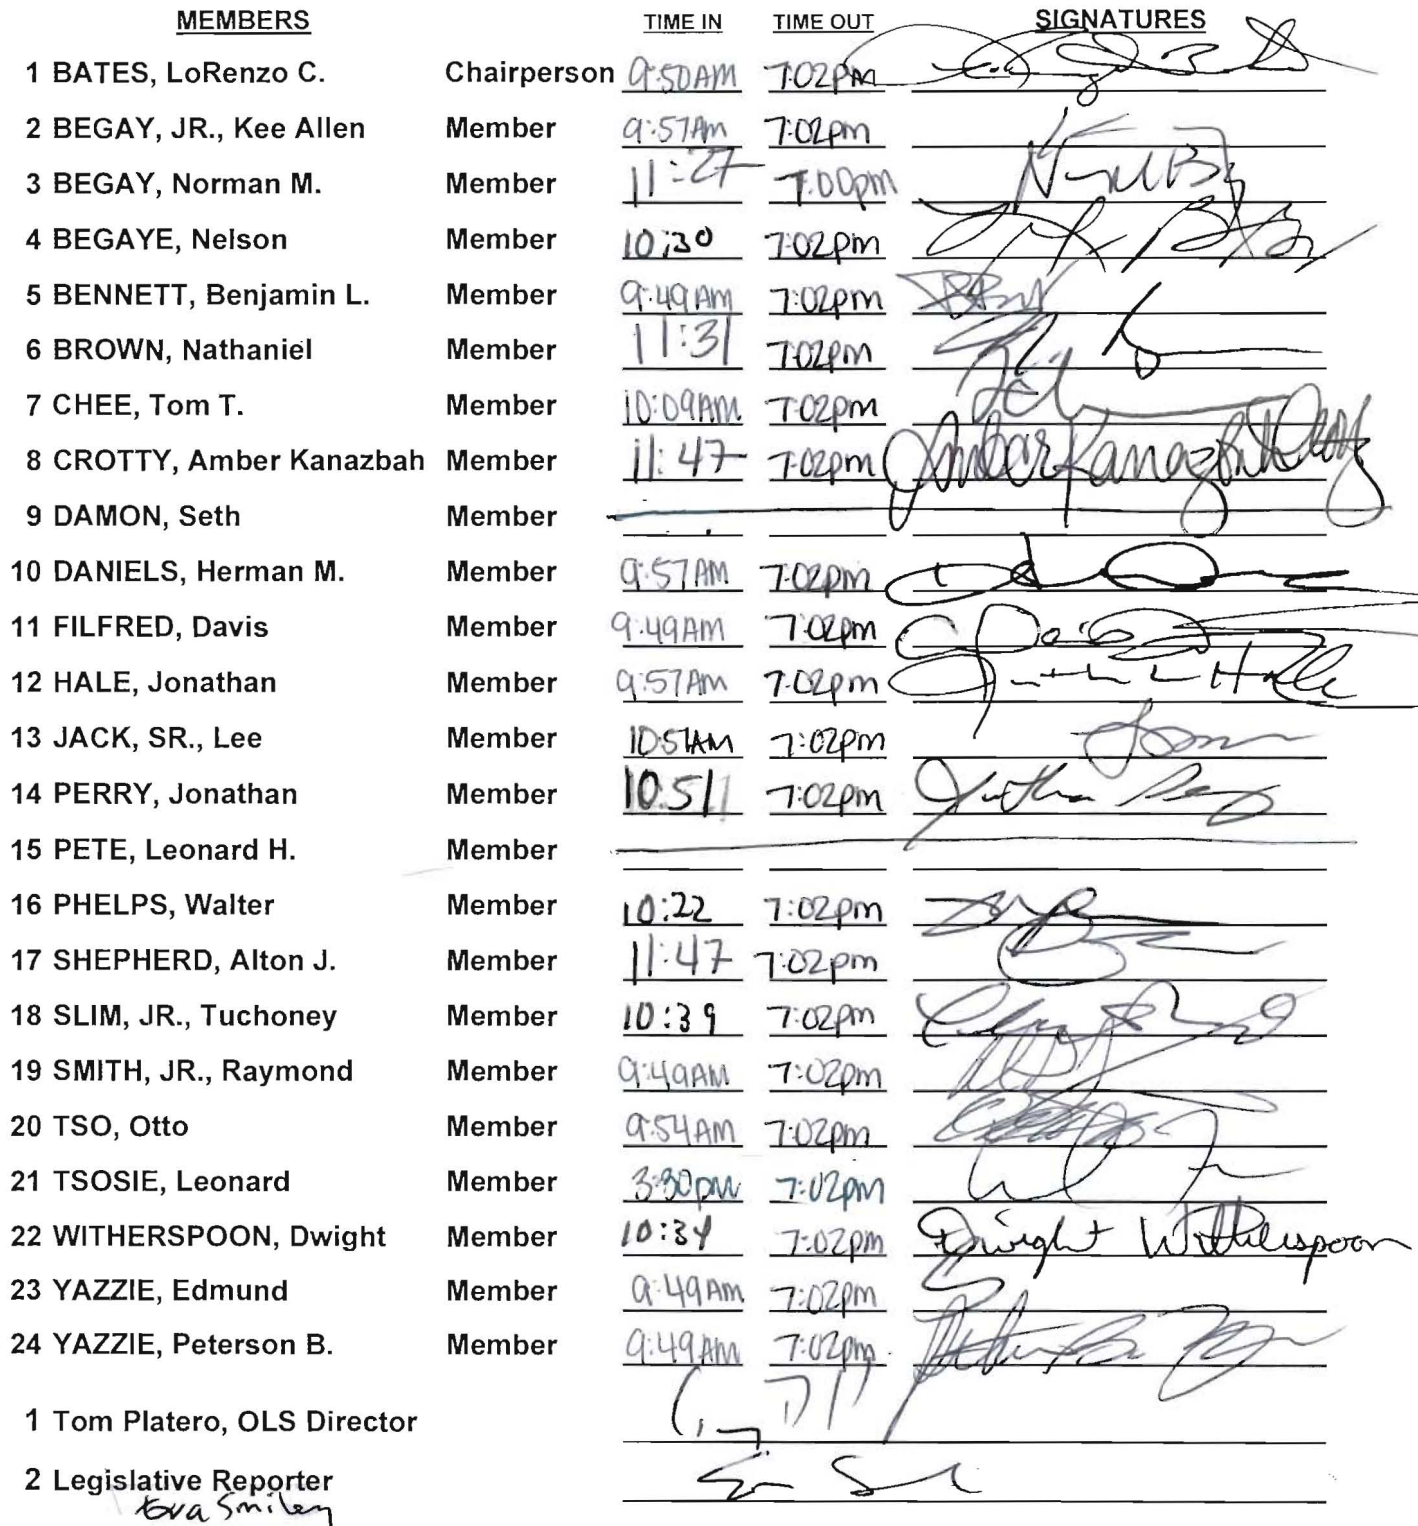 MEMBERS TIME IN TIME OUT SIGNATURES
1 BATES, LoRenzo C. Chairperson 9:50AM 7:02pm
2 BEGAY, JR., Kee Allen Member 9:57AM 7:02pm
3 BEGAY, Norman M. Member 11:27 7:00pm
4 BEGAYE, Nelson Member 10:30 7:02pm
5 BENNETT, Benjamin L. Member 9:49AM 7:02pm
6 BROWN, Nathaniel Member 11:31 7:02pm
7 CHEE, Tom T. Member 10:09AM 7:02pm
8 CROTTY, Amber Kanazbah Member 11:47 7:02pm
9 DAMON, Seth Member
10 DANIELS, Herman M. Member 9:57AM 7:02pm
11 FILFRED, Davis Member 9:49AM 7:02pm
12 HALE, Jonathan Member 9:57AM 7:02pm
13 JACK, SR., Lee Member 10:51AM 7:02pm
14 PERRY, Jonathan Member 10:51 7:02pm
15 PETE, Leonard H. Member
16 PHELPS, Walter Member 10:22 7:02pm
17 SHEPHERD, Alton J. Member 11:47 7:02pm
18 SLIM, JR., Tuchoney Member 10:39 7:02pm
19 SMITH, JR., Raymond Member 9:49AM 7:02pm
20 TSO, Otto Member 9:54AM 7:02pm
21 TSOSIE, Leonard Member 3:30pm 7:02pm
22 WITHERSPOON, Dwight Member 10:34 7:02pm Dwight Witherspoon
23 YAZZIE, Edmund Member 9:49AM 7:02pm
24 YAZZIE, Peterson B. Member 9:49AM 7:02pm
1 Tom Platero, OLS Director
2 Legislative Reporter
Eva Smiley